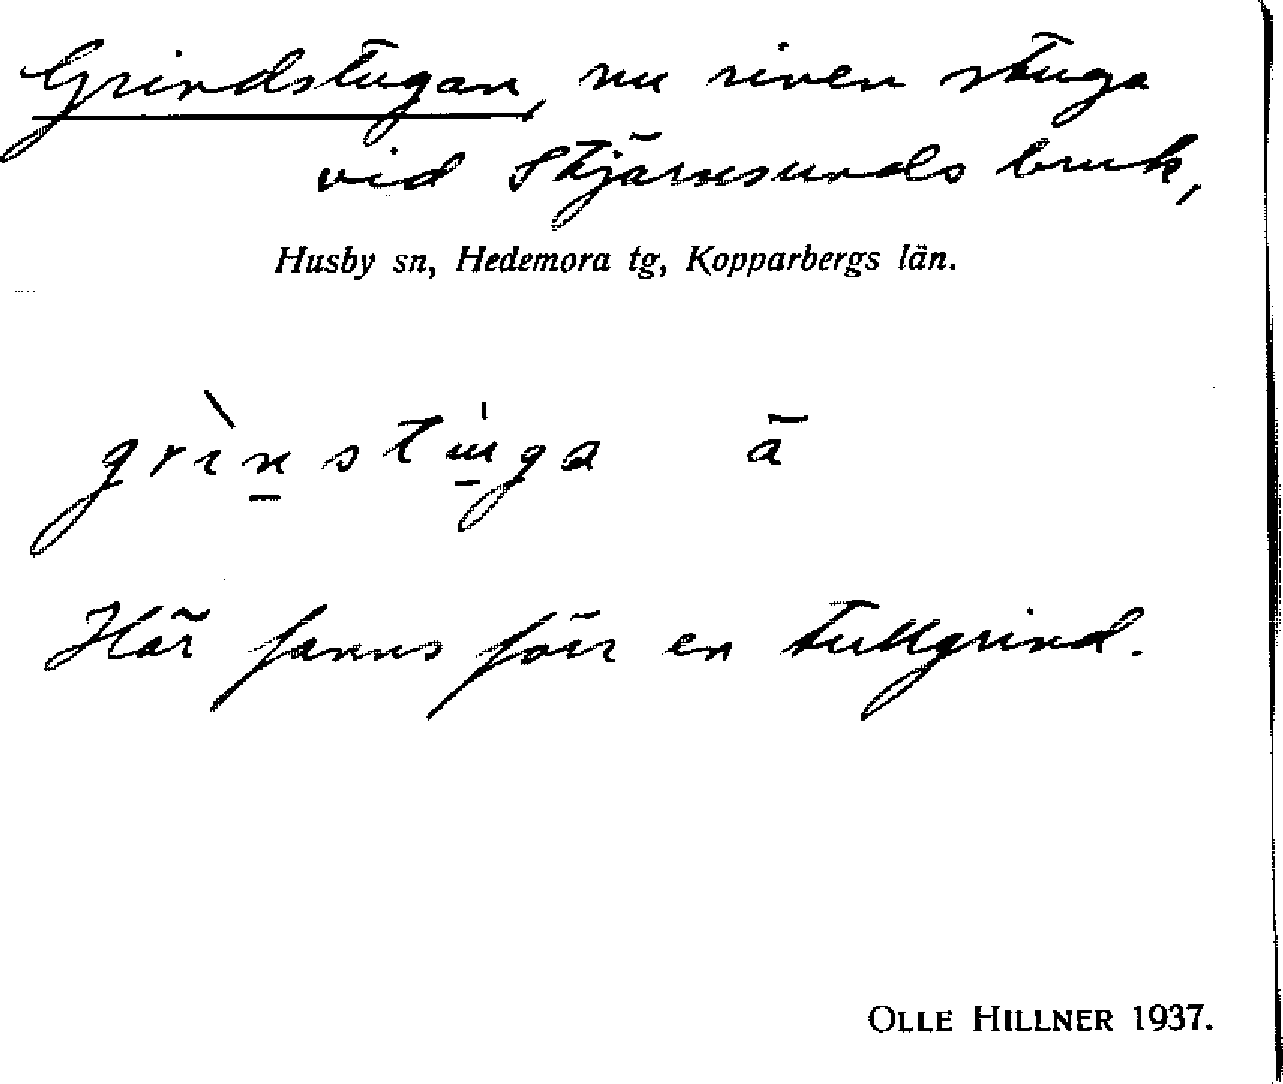 Grindstugan, nu riven stuga
vid Stjärnsunds bruk,
Husby sn, Hedemora tg, Kopparbergs län.
grinstuga ä
Här fanns förr en tullgrind.
OLLE HILLNER 1937.